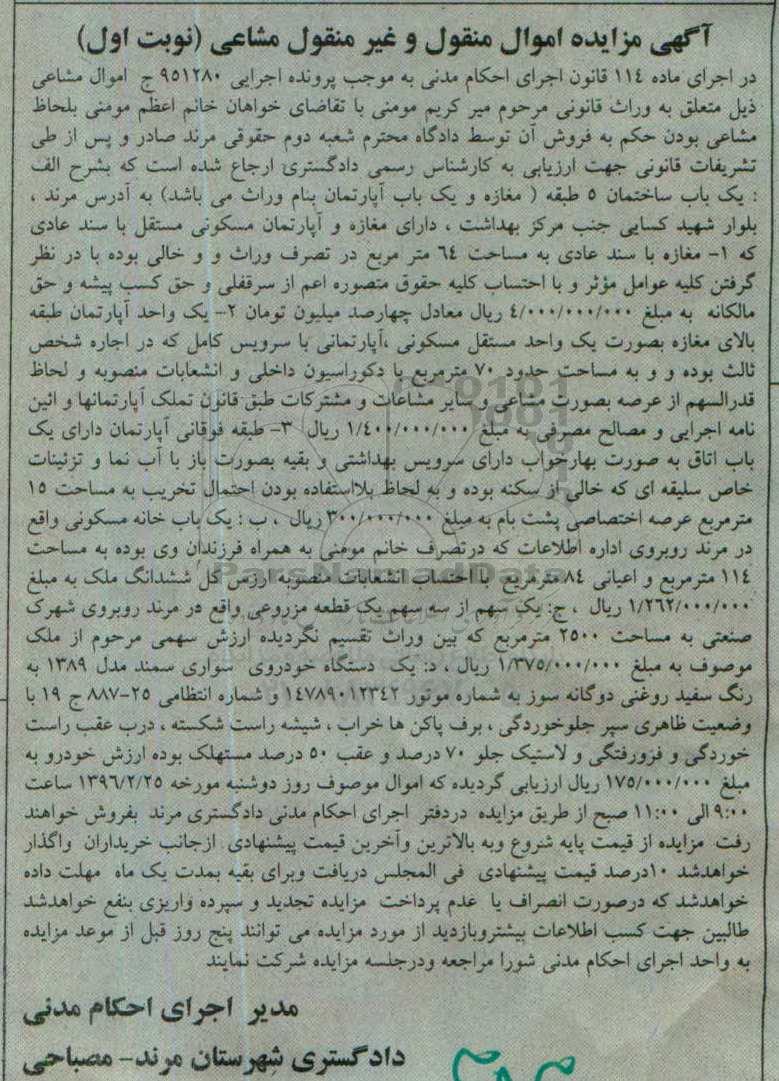 آگهی مزایده اموال منقول و غیر منقول مشاعی (نوبت اول)
در اجرای ماده ۱۱٤ قانون اجرای احکام مدنی به موجب پرونده اجرایی ۹۵۱۲۸۰ ج اموال مشاعی
ذیل متعلق به وراث قانونی مرحوم میر کریم مومنی با تقاضای خواهان خانم اعظم مومنی بلحاظ
مشاعی بودن حکم به فروش آن توسط دادگاه محترم شعبه دوم حقوقی مرند صادر و پس از طی
تشریفات قانونی جهت ارزیابی به کارشناس رسمی دادگستری ارجاع شده است که بشرح الف
: یک باب ساختمان ۵ طبقه ( مغازه و یک باب آپارتمان بنام وراث می باشد) به آدرس مرند ،
بلوار شهید کسایی جنب مرکز بهداشت ، دارای مغازه و آپارتمان مسکونی مستقل با سند عادی
که ۱- مغازه با سند عادی به مساحت ٦٤ متر مربع در تصرف وراث و و خالی بوده با در نظر
گرفتن کلیه عوامل مؤثر و با احتساب کلیه حقوق متصوره اعم از سرقفلی و حق کسب پیشه و حق
مالکانه به مبلغ ٤/۰۰۰/۰۰۰/۰۰۰ ریال معادل چهارصد میلیون تومان ۲- یک واحد آپارتمان طبقه
بالای مغازه بصورت یک واحد مستقل مسکونی ،آپارتمانی با سرویس کامل که در اجاره شخص
ثالث بوده و و به مساحت حدود ۷۰ مترمربع با دکوراسیون داخلی و انشعابات منصوبه و لحاظ
قدرالسهم از عرصه بصورت مشاعی و سایر مشاعات و مشترکات طبق قانون تملک آپارتمانها و ائین
نامه اجرایی و مصالح مصرفی به مبلغ ۱/٤۰۰/۰۰۰/۰۰۰ ریال ۳- طبقه فوقانی آپارتمان دارای یک
باب اتاق به صورت بهارخواب دارای سرویس بهداشتی و بقیه بصورت باز با آب نما و تزئینات
خاص سلیقه ای که خالی از سکنه بوده و به لحاظ بلااستفاده بودن احتمال تخریب به مساحت ۱۵
مترمربع عرصه اختصاصی پشت بام به مبلغ ۳۰۰/۰۰۰/۰۰۰ ریال ، ب : یک باب خانه مسکونی واقع
در مرند روبروی اداره اطلاعات که درتصرف خانم مومنی به همراه فرزندان وی بوده به مساحت
۱۱٤ مترمربع و اعیانی ۸٤ مترمربع با احتساب انشعابات منصوبه ارزش کل ششدانگ ملک به مبلغ
۱/۲٦۲/۰۰۰/۰۰۰ ریال ، ج: یک سهم از سه سهم یک قطعه مزروعی واقع در مرند روبروی شهرک
صنعتی به مساحت ۲۵۰۰ مترمربع که بین وراث تقسیم نگردیده ارزش سهمی مرحوم از ملک
موصوف به مبلغ ۱/۳۷۵/۰۰۰/۰۰۰ ریال ، د: یک دستگاه خودروی سواری سمند مدل ۱۳۸۹ به
رنگ سفید روغنی دوگانه سوز به شماره موتور ۱٤۷۸۹۰۱۲۳٤۲ و شماره انتظامی ۲۵-۸۸۷ ج ۱۹ با
وضعیت ظاهری سپر جلوخوردگی ، برف پاکن ها خراب ، شیشه راست شکسته ، درب عقب راست
خوردگی و فرورفتگی و لاستیک جلو ۷۰ درصد و عقب ۵۰ درصد مستهلک بوده ارزش خودرو به
مبلغ ۱۷۵/۰۰۰/۰۰۰ ریال ارزیابی گردیده که اموال موصوف روز دوشنبه مورخه ۱۳۹٦/۲/۲۵ ساعت
۹:۰۰ الی ۱۱:۰۰ صبح از طریق مزایده دردفتر اجرای احکام مدنی دادگستری مرند بفروش خواهند
رفت مزایده از قیمت پایه شروع وبه بالاترین وآخرین قیمت پیشنهادی ازجانب خریداران واگذار
خواهدشد ۱۰درصد قیمت پیشنهادی فی المجلس دریافت وبرای بقیه بمدت یک ماه مهلت داده
خواهدشد که درصورت انصراف یا عدم پرداخت مزایده تجدید و سپرده واریزی بنفع خواهدشد
طالبین جهت کسب اطلاعات بیشتروبازدید از مورد مزایده می توانند پنج روز قبل از موعد مزایده
به واحد اجرای احکام مدنی شورا مراجعه ودرجلسه مزایده شرکت نمایند
مدیر اجرای احکام مدنی
دادگستری شهرستان مرند- مصباحی
ParsNamadData